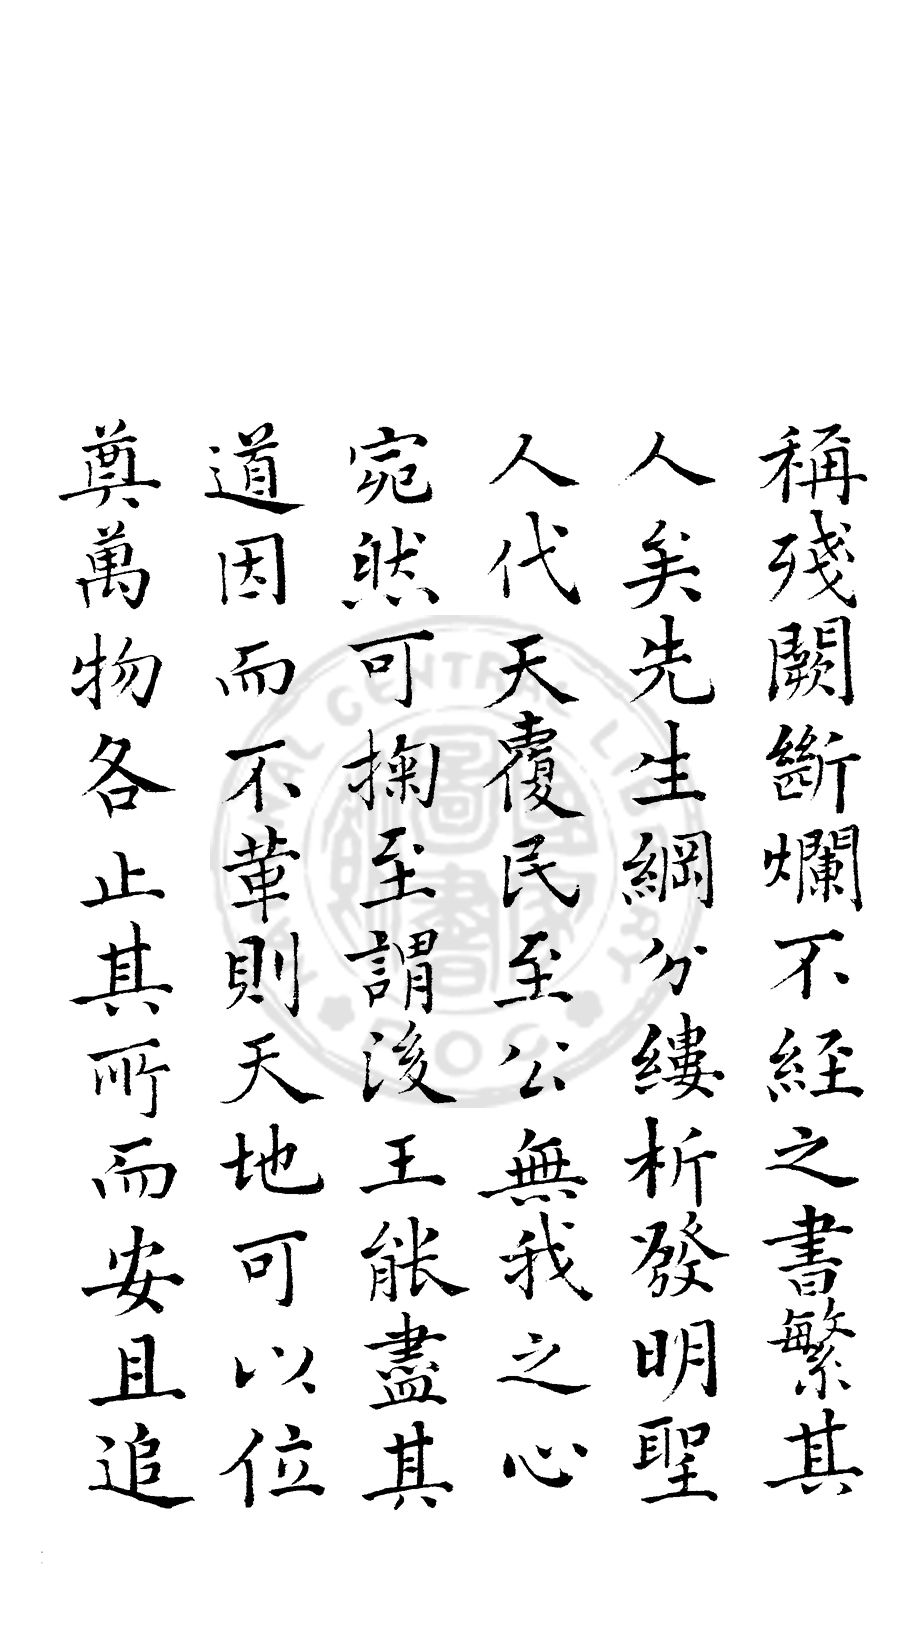 稱殘闕斷爛不經之書繁其
人矣先生綱分縷析發明聖
人代天覆民至公無我之心
宛然可掬至謂後王能盡其
道因而不革則天地可以位
奠萬物各止其所而安且追